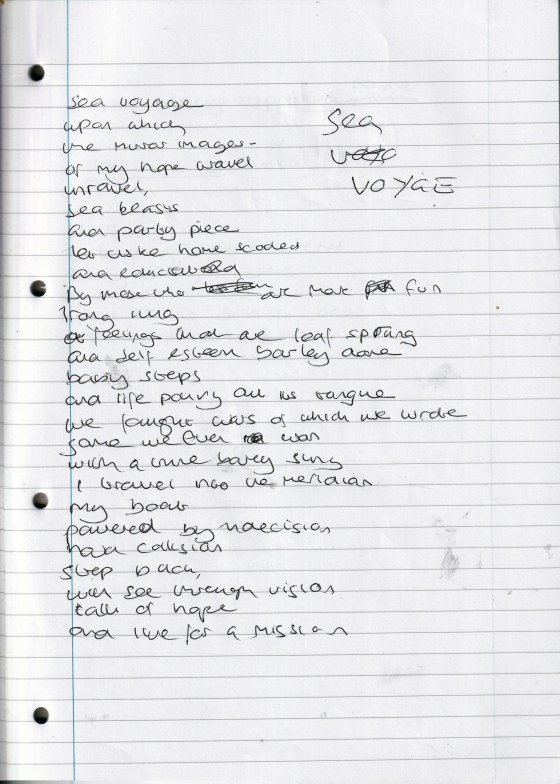 sea voyage
upon which
the mirror images -
of my hope travel
unravel,
sea beasts
and party piece
like home
and
By those who are more fun
of feelings that are leaf sprung
and self esteem barley done
baby steps
and life poking out its tongue
we fought wars of which we wrote
some we even won
with a tune barley sung
I travel into the meridian
my boat
powered by indecision
collision
step back,
see through vision
talk of hope
and live for a mission
Sea
VOYGE